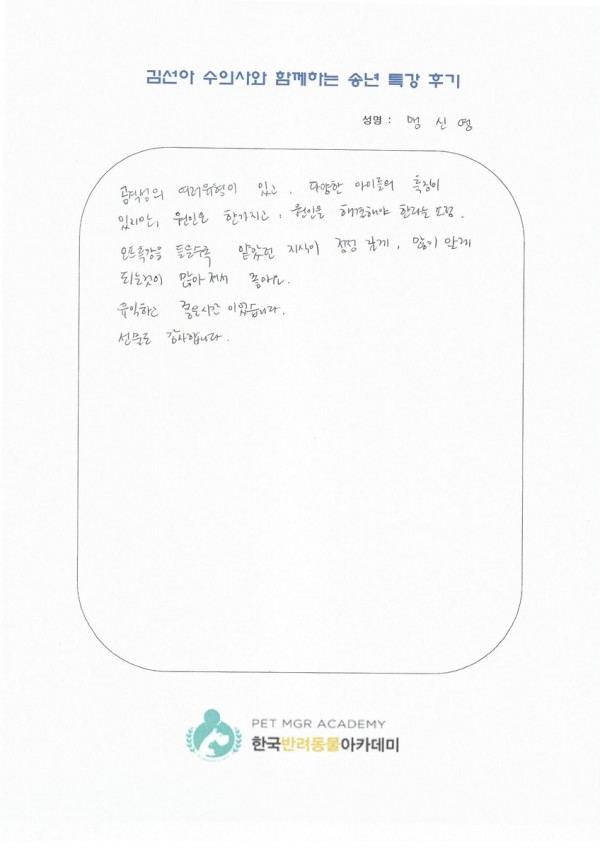 김선아 수의사와 함께하는 송년 특강 후기
성명 : 명 신 영
공격성의 여러유형이 있고, 다양한 아이들의 특징이
있지만, 원인은 한가지고, 원인을 해결해야 한다는 도정.
오프특강을 들을수록 얕았던 지식이 점점 깊게, 많이 알게
되는것이 많아져서 좋아요.
유익하고 좋은시간이었습니다.
선물도 감사합니다.
PET MGR ACADEMY
한국반려동물아카데미